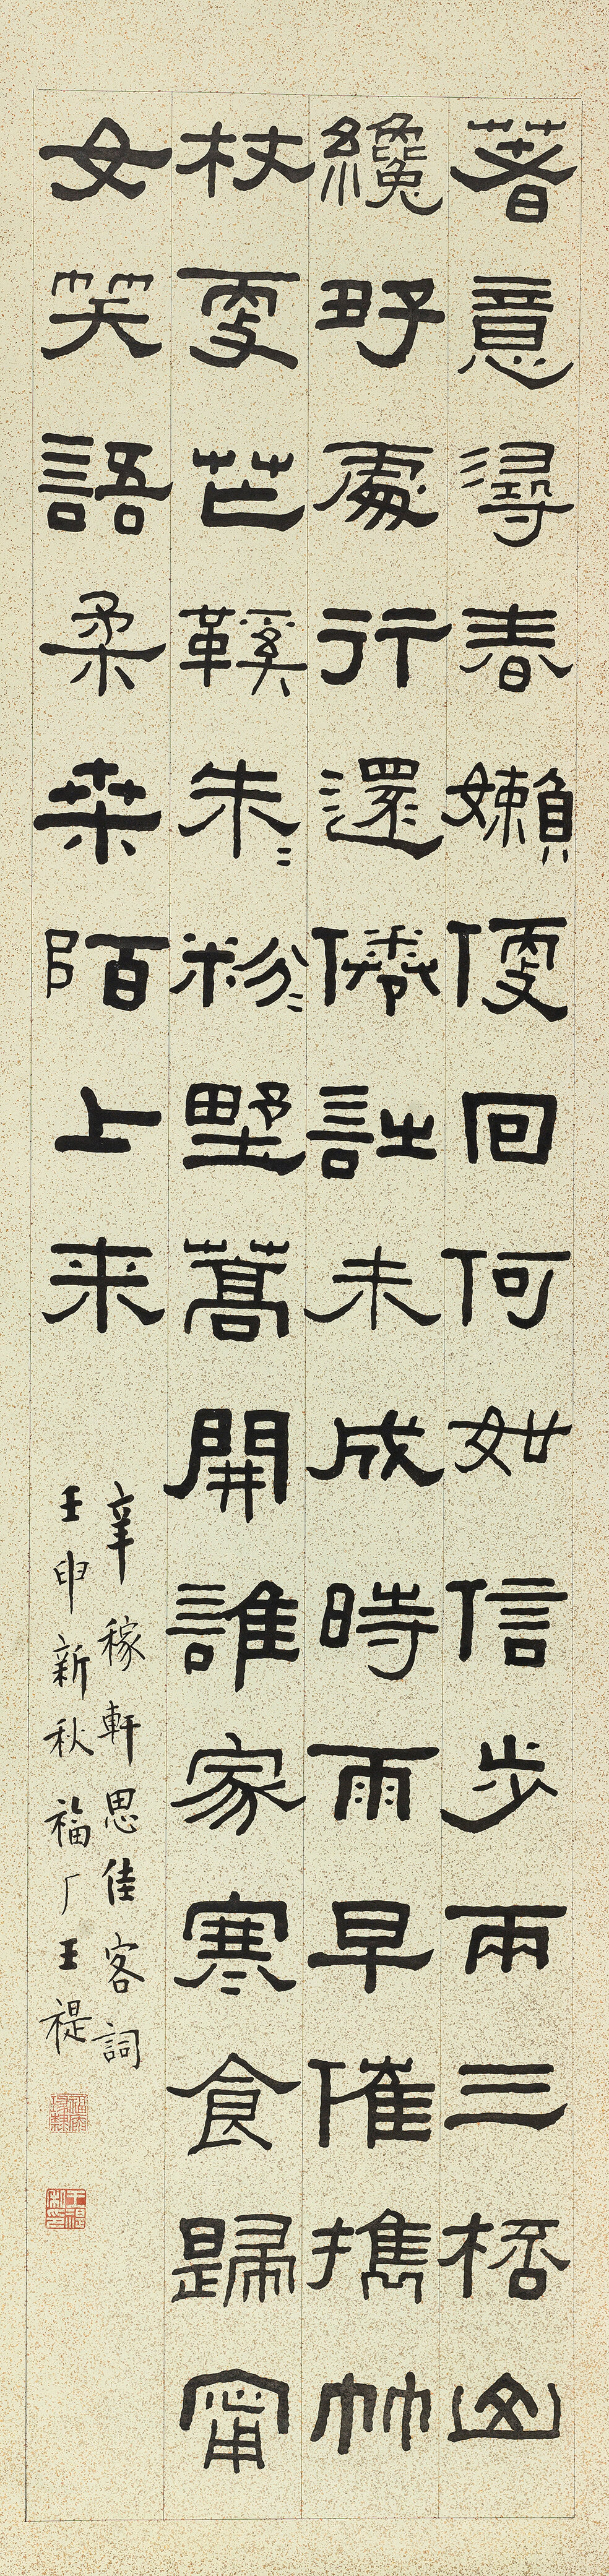 著意尋春嬾便回何如信步兩三桮山
纔好處行還倦詩未成時雨早催攜竹
杖更芒鞵朱〻粉〻野蒿開誰家寒食歸甯
女笑語柔桑陌上来
辛稼軒思佳客詞
壬申新秋福厂王禔